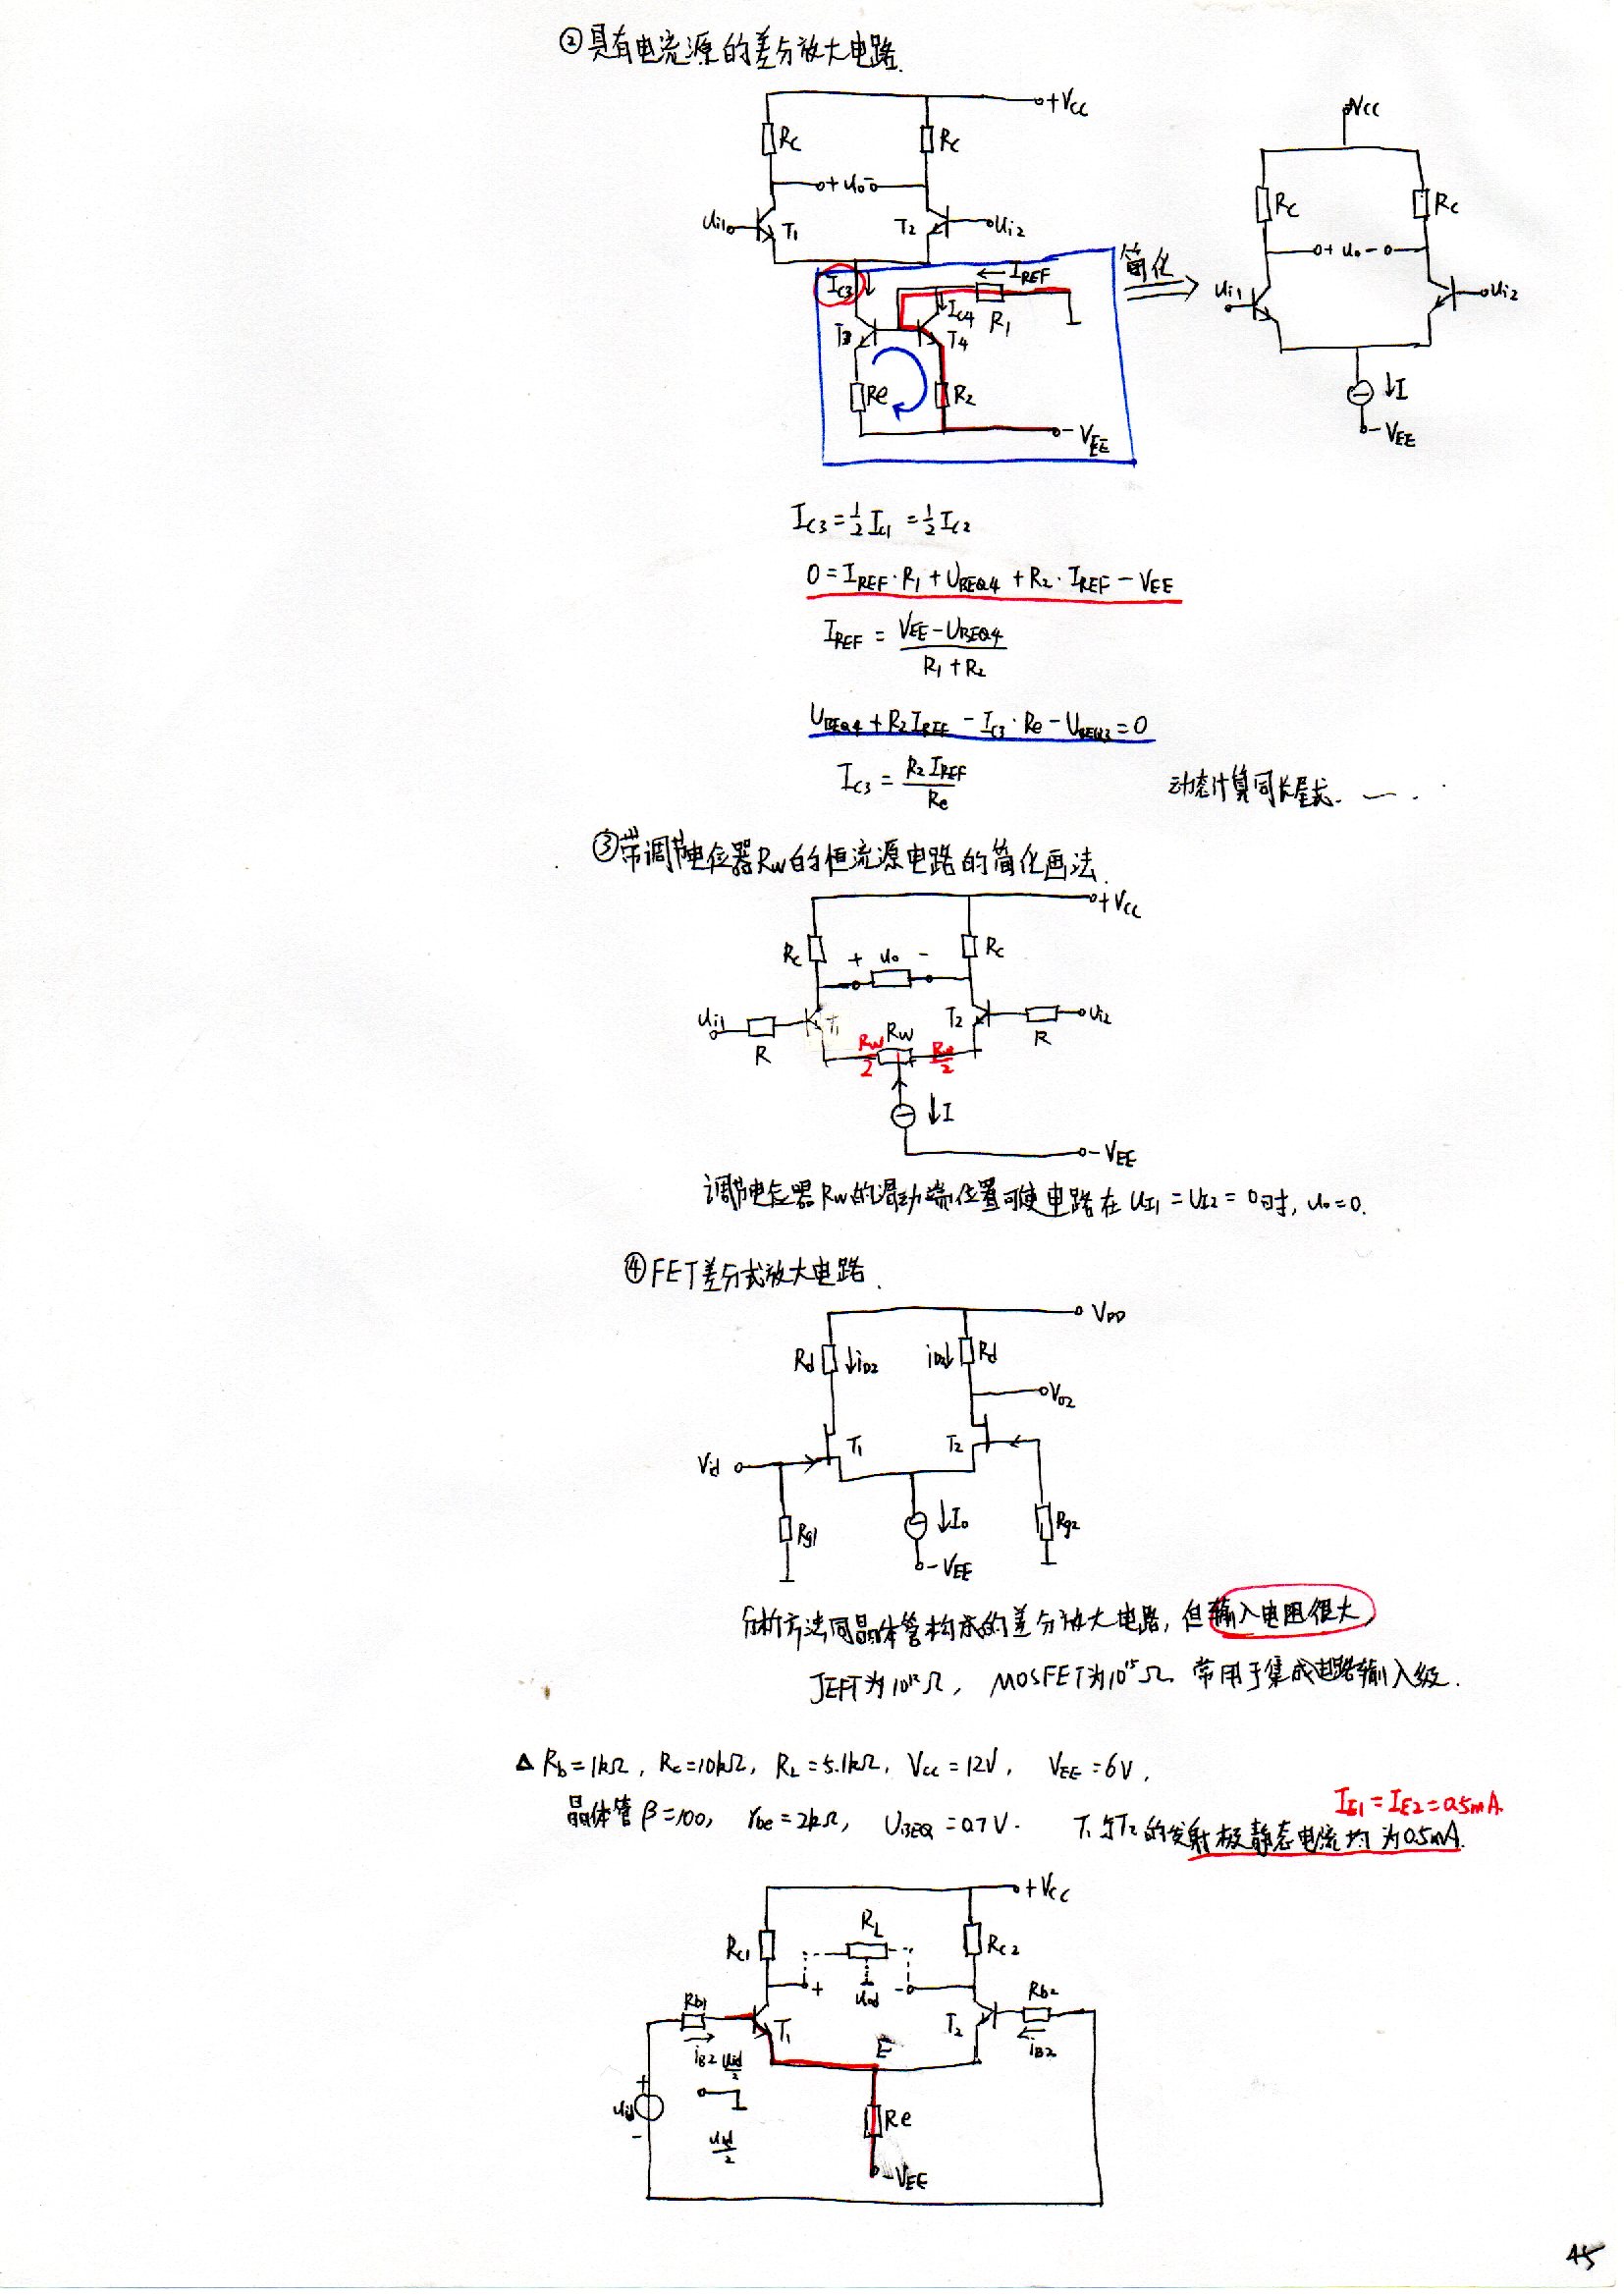 ②具有电流源的差分放大电路.
+Vcc
Rc Rc
+ uo -
ui1 T1 T2 ui2
IC3 IREF
IC4 R1
T3 T4
Re R2
-VEE
简化
Vcc
Rc Rc
+ uo -
ui1 ui2
↓I
-VEE
IC3=½IC1=½IC2
0=IREF·R1+UBEQ4+R2·IREF-VEE
IREF = (VEE-UBEQ4)/(R1+R2)
UBEQ4+R2IREF-IC3·Re-UBEQ3=0
IC3 = R2IREF/Re
动态计算同长尾式. — . ·
③带调节电位器Rw的恒流源电路的简化画法.
+Vcc
Rc Rc
+ uo -
ui1 R T1 T2 R ui2
Rw/2 Rw Rw/2
↓I
-VEE
调节电位器Rw的滑动端位置可使电路在UI1=UI2=0时, uo=0.
④FET差分式放大电路.
VDD
Rd ↓iD2 iD2↓ Rd
Vo2
Vid T1 T2
Rg1 ↓Io Rg2
-VEE
分析方法同晶体管构成的差分放大电路, 但输入电阻很大,
JEFT为10¹²Ω, MOSFET为10¹⁵Ω. 常用于集成电路输入级.
△ Rb=1kΩ, Rc=10kΩ, RL=5.1kΩ, Vcc=12V, VEE=6V,
IE1=IE2=0.5mA
晶体管β=100, rbe=2kΩ, UBEQ=0.7V. T1与T2的发射极静态电流均为0.5mA.
+Vcc
Rc1 RL Rc2
+ uod -
Rb1 T1 T2 Rb2
iB2 uid/2 E iB2
+
uid
-
uid/2
Re
-VEE
45